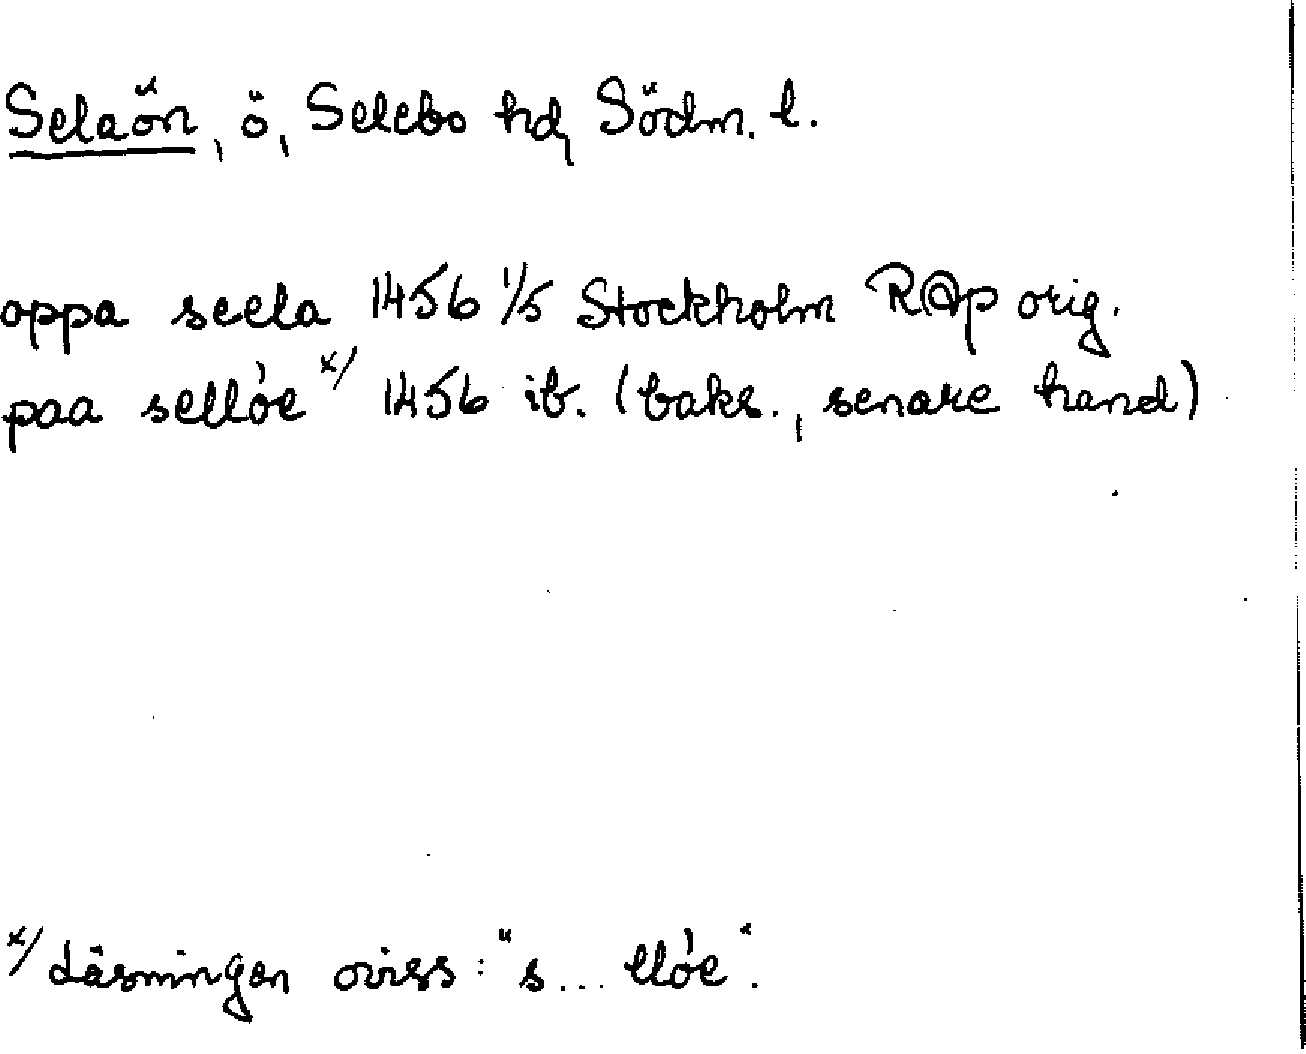 Selaön, ö, Selebo hd, Södm. l.
oppa seela 1456 1/5 Stockholm RAp orig.
paa sellóe x/ 1456 ib. (baks., senare hand)
x/ Läsningen oviss: "s... llóe".